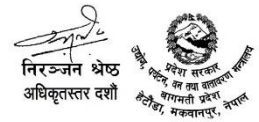 निरञ्जन श्रेष्ठ
अधिकृतस्तर दशौं
प्रदेश सरकार
उद्योग, पर्यटन, वन तथा वातावरण मन्त्रालय
बागमती प्रदेश
हेटौंडा, मकवानपुर, नेपाल